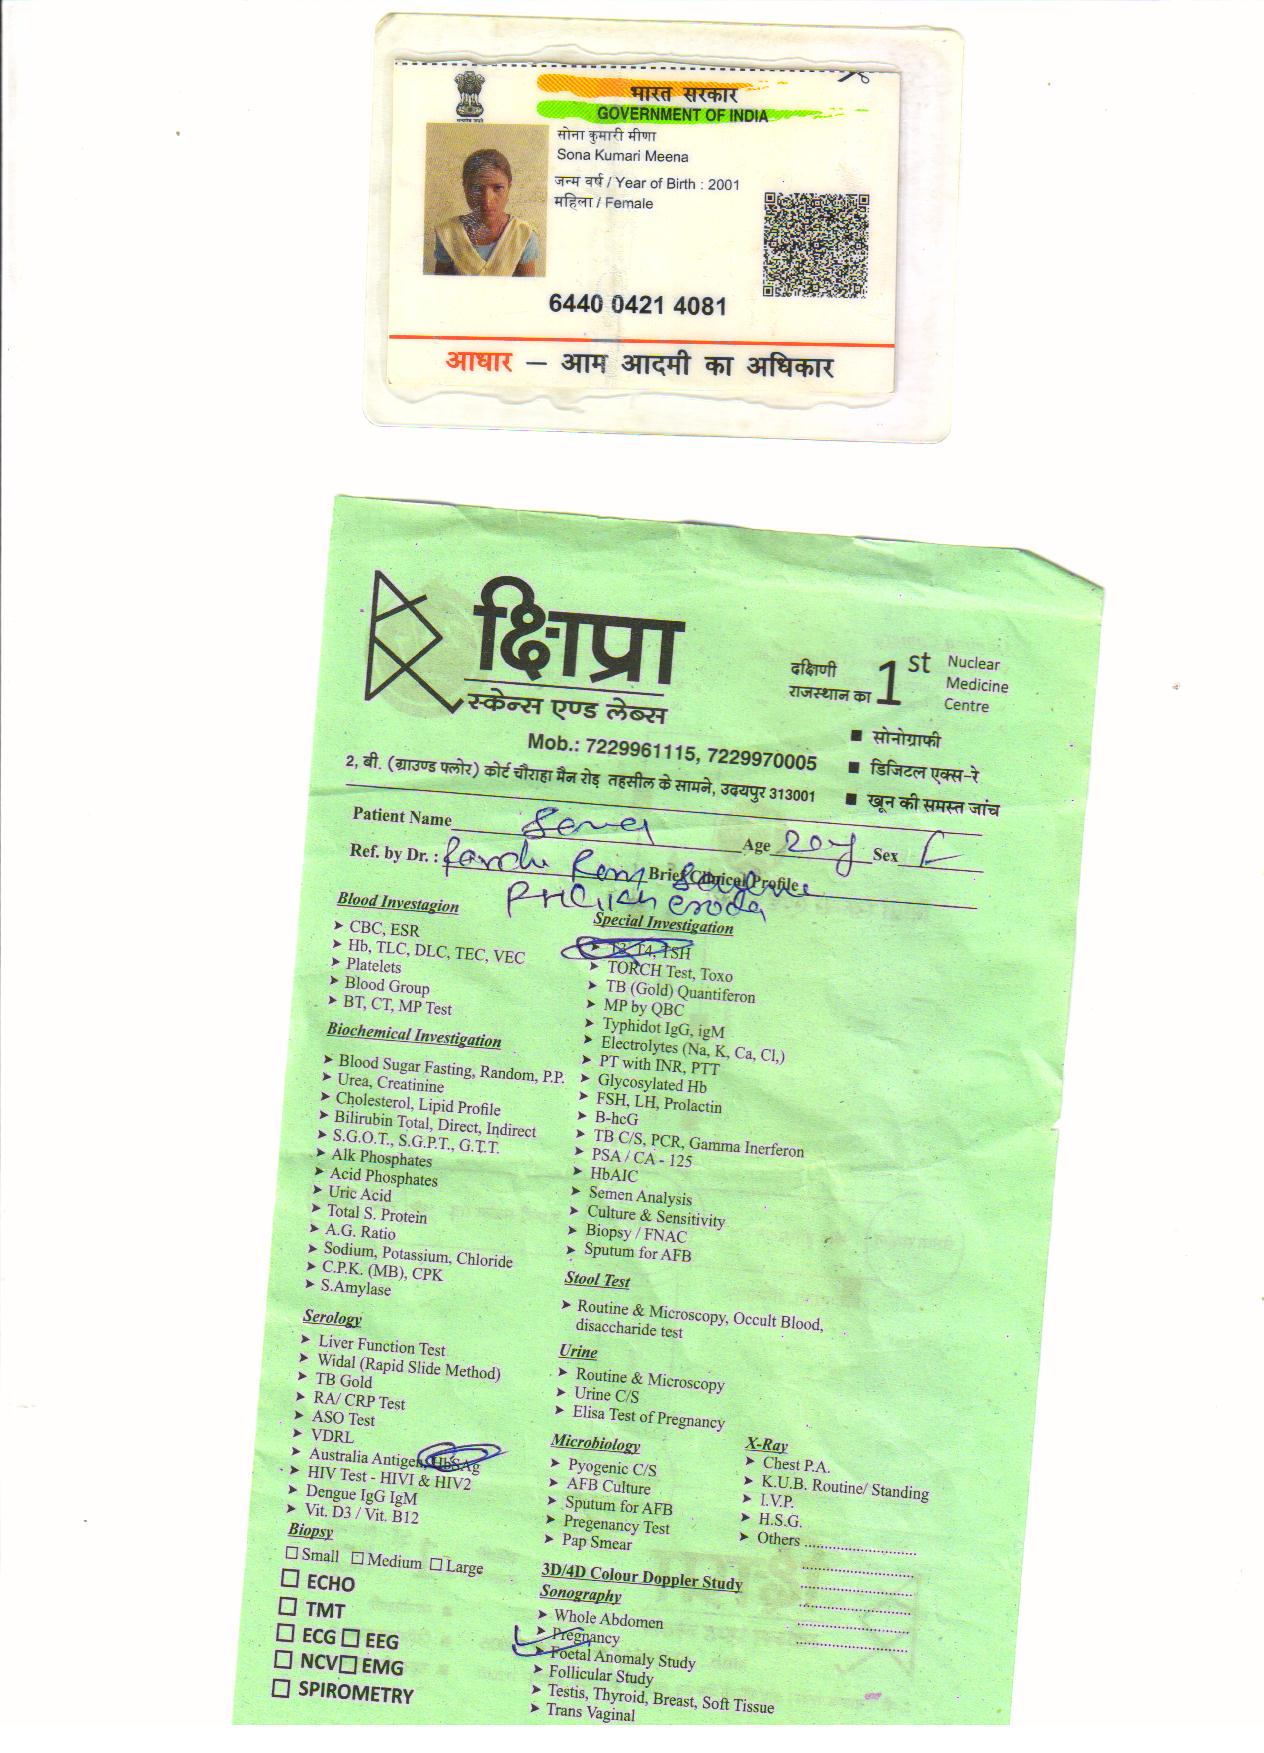 भारत सरकार
GOVERNMENT OF INDIA
सोना कुमारी मीणा
Sona Kumari Meena
जन्म वर्ष / Year of Birth : 2001
महिला / Female
6440 0421 4081
आधार – आम आदमी का अधिकार
क्षिप्रा
स्केन्स एण्ड लेब्स
दक्षिणी राजस्थान का 1st Nuclear Medicine Centre
Mob.: 7229961115, 7229970005
2, बी. (ग्राउण्ड फ्लोर) कोर्ट चौराहा मैन रोड़ तहसील के सामने, उदयपुर 313001
■ सोनोग्राफी
■ डिजिटल एक्स-रे
■ खून की समस्त जांच
Patient Name Age 20 Sex F
Ref. by Dr. : Brief Clinical Profile
Blood Investagion
➤ CBC, ESR
➤ Hb, TLC, DLC, TEC, VEC
➤ Platelets
➤ Blood Group
➤ BT, CT, MP Test
Biochemical Investigation
➤ Blood Sugar Fasting, Random, P.P.
➤ Urea, Creatinine
➤ Cholesterol, Lipid Profile
➤ Bilirubin Total, Direct, Indirect
➤ S.G.O.T., S.G.P.T., G.T.T.
➤ Alk Phosphates
➤ Acid Phosphates
➤ Uric Acid
➤ Total S. Protein
➤ A.G. Ratio
➤ Sodium, Potassium, Chloride
➤ C.P.K. (MB), CPK
➤ S.Amylase
Serology
➤ Liver Function Test
➤ Widal (Rapid Slide Method)
➤ TB Gold
➤ RA/ CRP Test
➤ ASO Test
➤ VDRL
➤ Australia Antigen, HbSAg
➤ HIV Test - HIVI & HIV2
➤ Dengue IgG IgM
➤ Vit. D3 / Vit. B12
Biopsy
☐ Small ☐ Medium ☐ Large
☐ ECHO
☐ TMT
☐ ECG ☐ EEG
☐ NCV ☐ EMG
☐ SPIROMETRY
Special Investigation
➤ T3, T4, TSH
➤ TORCH Test, Toxo
➤ TB (Gold) Quantiferon
➤ MP by QBC
➤ Typhidot IgG, igM
➤ Electrolytes (Na, K, Ca, Cl,)
➤ PT with INR, PTT
➤ Glycosylated Hb
➤ FSH, LH, Prolactin
➤ B-hcG
➤ TB C/S, PCR, Gamma Inerferon
➤ PSA / CA - 125
➤ HbAIC
➤ Semen Analysis
➤ Culture & Sensitivity
➤ Biopsy / FNAC
➤ Sputum for AFB
Stool Test
➤ Routine & Microscopy, Occult Blood,
disaccharide test
Urine
➤ Routine & Microscopy
➤ Urine C/S
➤ Elisa Test of Pregnancy
Microbiology
➤ Pyogenic C/S
➤ AFB Culture
➤ Sputum for AFB
➤ Pregenancy Test
➤ Pap Smear
X-Ray
➤ Chest P.A.
➤ K.U.B. Routine/ Standing
➤ I.V.P.
➤ H.S.G.
➤ Others
3D/4D Colour Doppler Study
Sonography
➤ Whole Abdomen
➤ Pregnancy
➤ Foetal Anomaly Study
➤ Follicular Study
➤ Testis, Thyroid, Breast, Soft Tissue
➤ Trans Vaginal